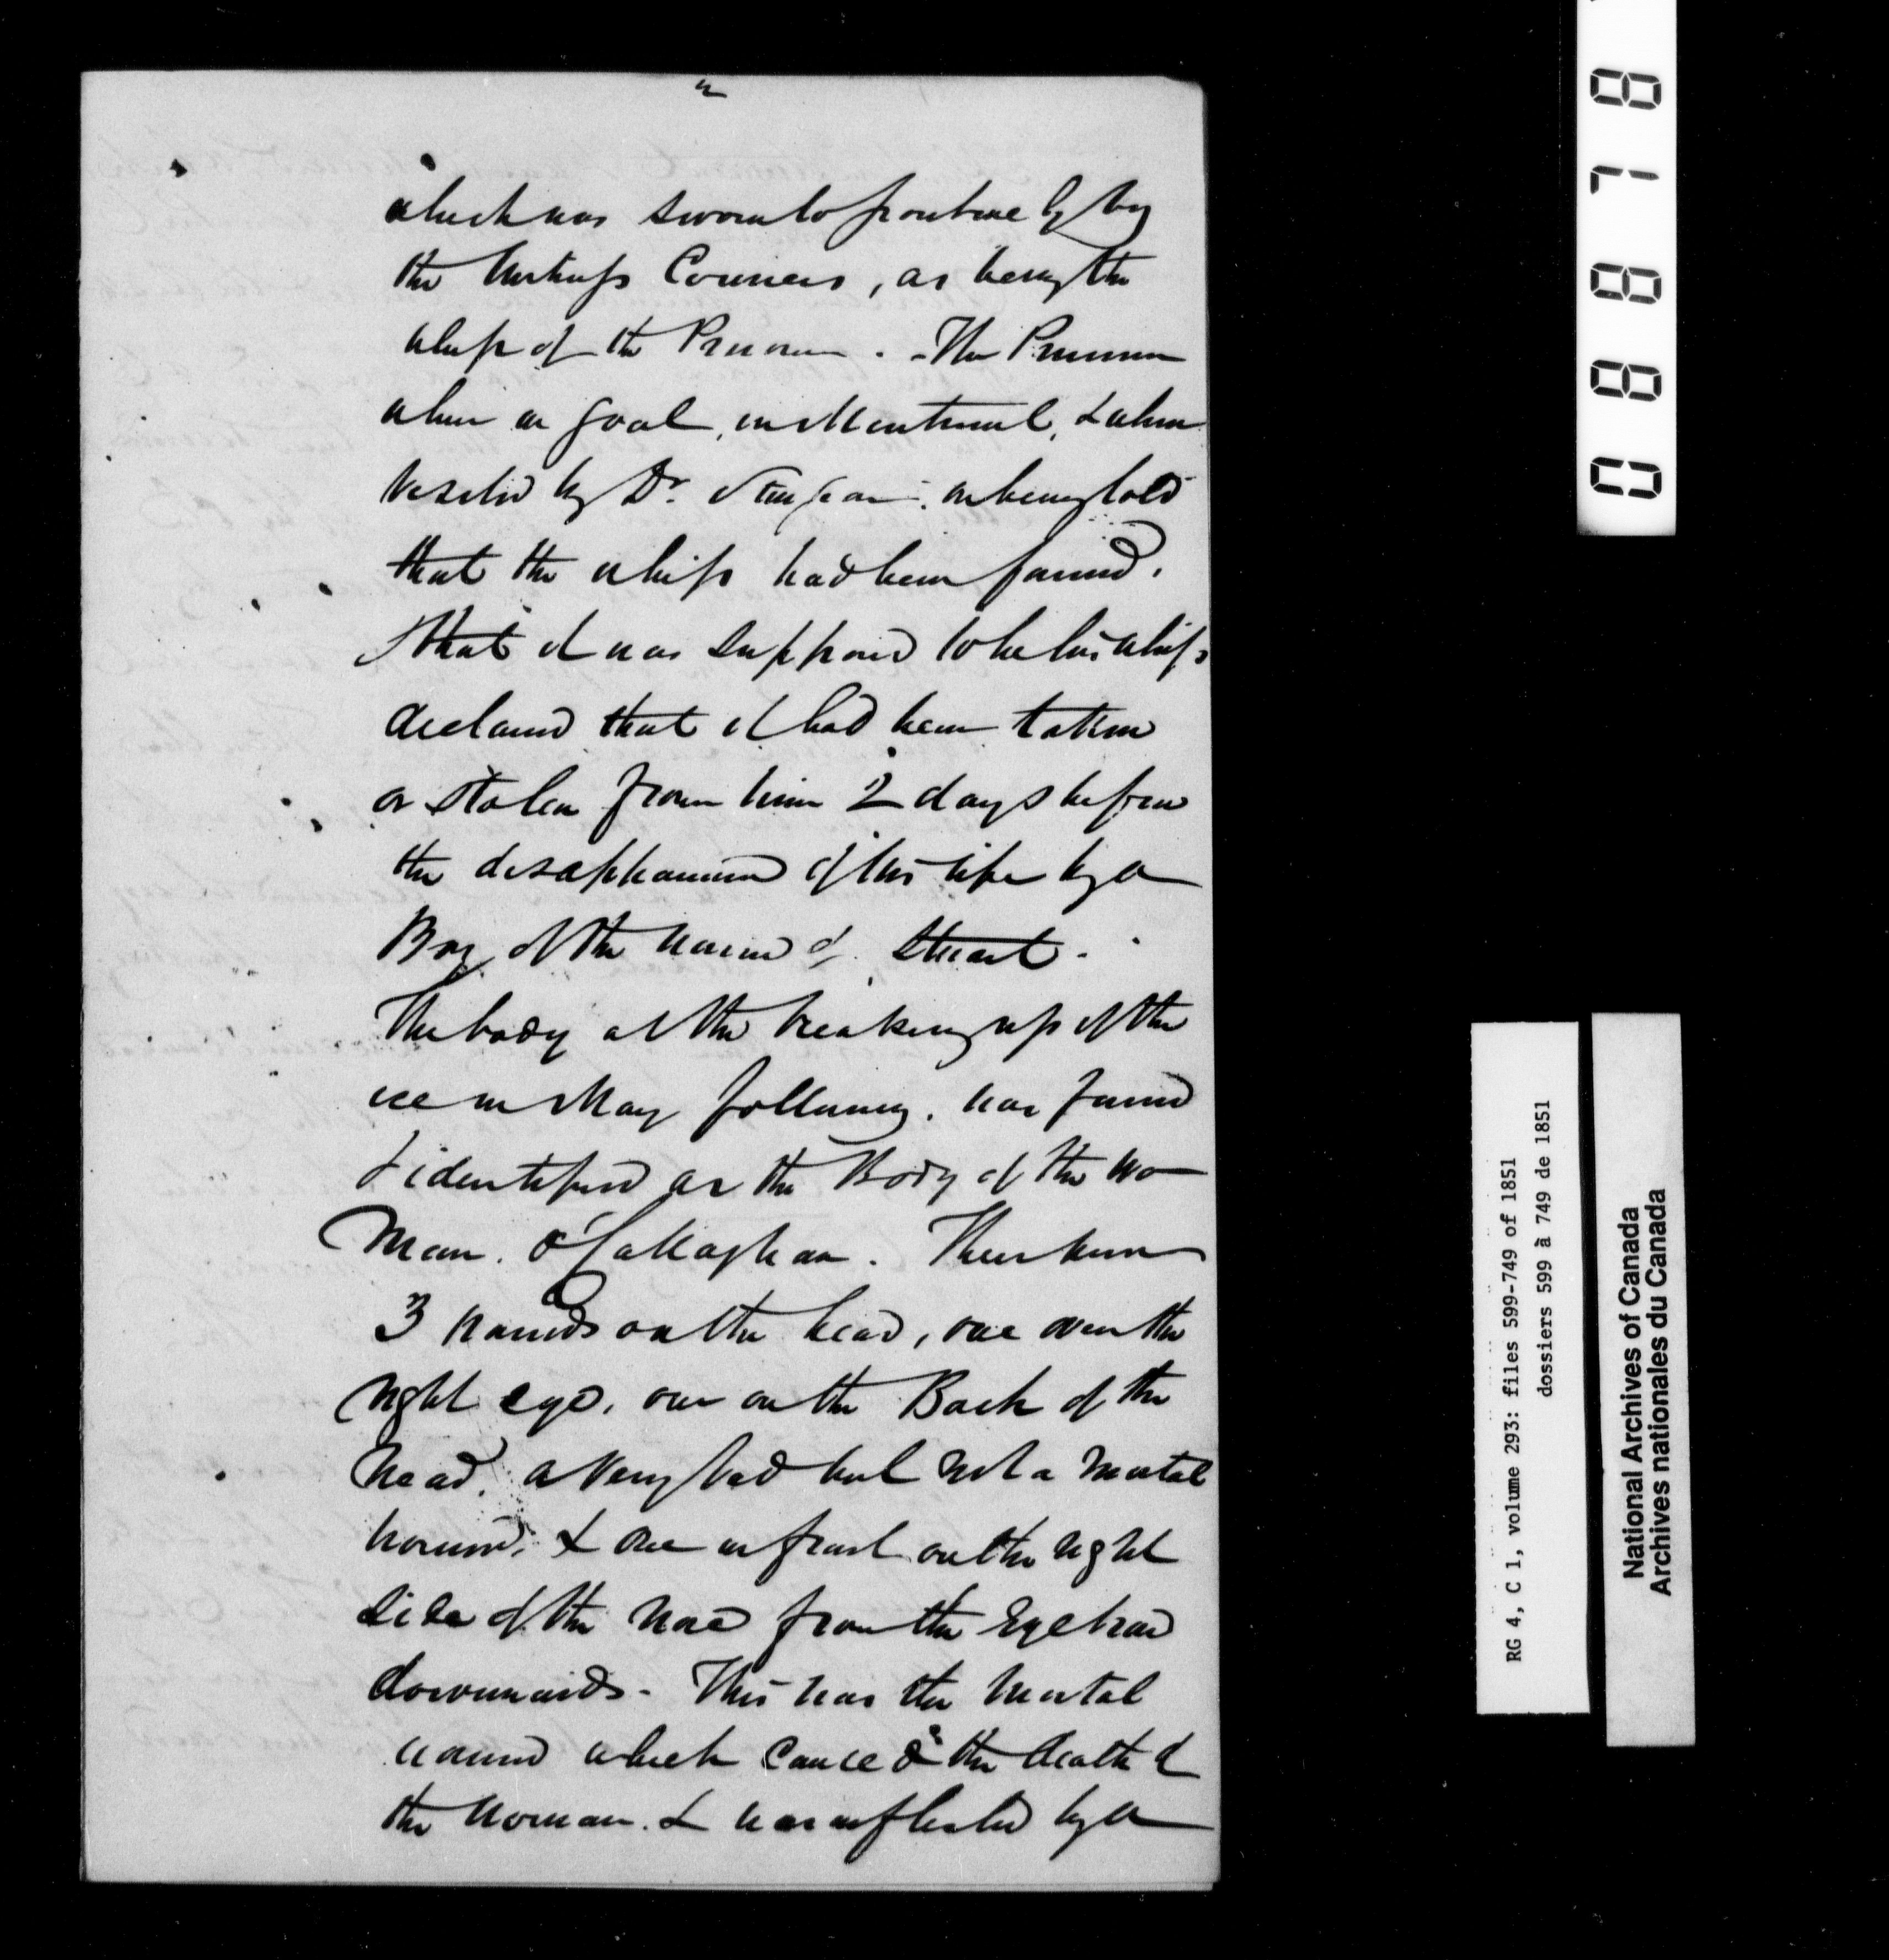 which was sworn to positively by
the Witness Conners, as being the
whip of the Prisoner. - The Prisoner
when in goal, in Montreal, & when
visited by Dr. on being told
that the whip had been found,
& that it was supposed to be his whip
declared that it had been taken
or stolen from him 2 days before
the disappearance of his wife by a
Boy of the name of Stuart.
The body at the breaking up of the
ice in May following, was found
& identified as the Body of the wo
man. O'Callaghan. There were
3 wounds on the head, one over the
right eye, one on the Back of the
head, a very bad but not a mortal
wound, & one in front on the right
side of the nose from the Eyebrow
downwards - This was the mortal
wound which caused the death of
the woman. & was inflicted by a
088718
RG 4, C 1, volume 293: files 599-749 of 1851
dossiers 599 à 749 de 1851
National Archives of Canada
Archives nationales du Canada